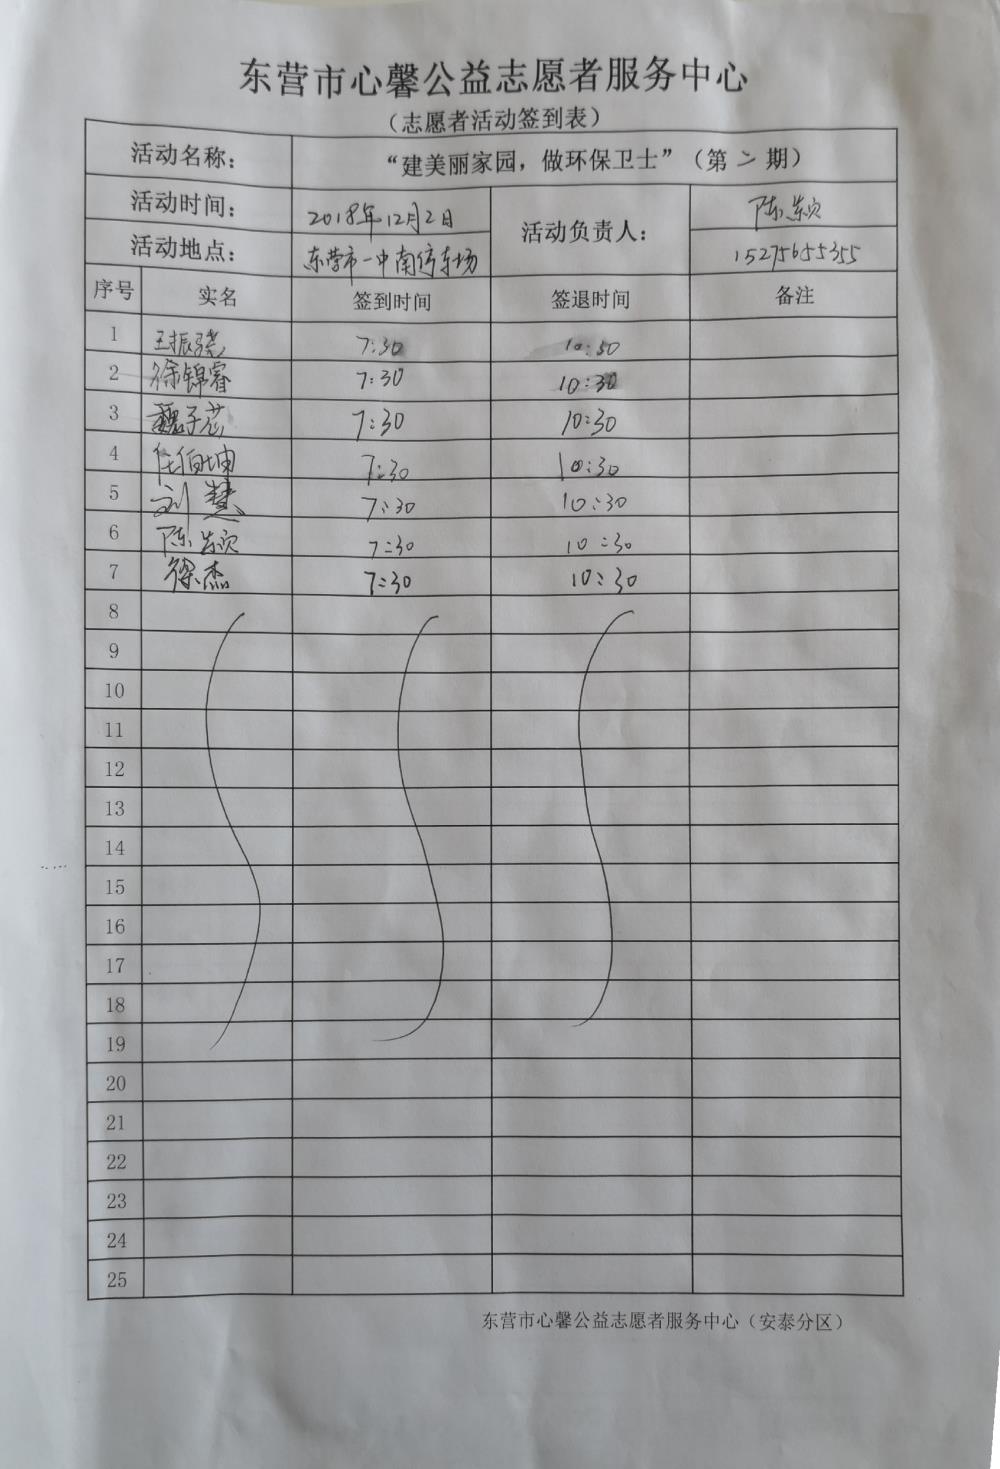 东营市心馨公益志愿者服务中心
（志愿者活动签到表）
活动名称： “建美丽家园，做环保卫士”（第二期）
活动时间： 2018年12月2日 活动负责人： 陈颖
活动地点： 东营市一中南停车场 15275655355
序号 实名 签到时间 签退时间 备注
1 王振骁 7:30 10:30
2 徐锦睿 7:30 10:30
3 魏子芯 7:30 10:30
4 任佰坤 7:30 10:30
5 刘慧 7:30 10:30
6 陈颖 7:30 10:30
7 徐杰 7:30 10:30
8
9
10
11
12
13
14
15
16
17
18
19
20
21
22
23
24
25
东营市心馨公益志愿者服务中心（安泰分区）